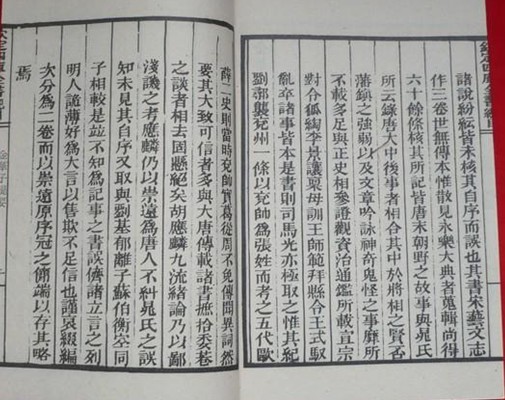 欽定四庫全書總目
諸說紛紜皆未核其自序而誤也其書宋藝文志
作三卷世無傳本惟散見永樂大典者蒐輯尚得
六十餘條核其所記皆唐末朝野之故事與晁氏
所云錄唐大中後事者相合其中於將相之賢否
藩鎮之強弱以及文章吟詠神奇鬼怪之事靡所
不載多足與正史相參證觀資治通鑑所載宣宗
對令狐綯李景讓稟母訓王師範拜縣令王式馭
亂卒諸事皆本是書則司馬光亦極取之惟其紀
劉鄩襲兗州一條以兗師為張姓而考之五代歐
薛二史則當時兗帥實葛從周不免傳聞異詞然
要其大致可信者多與大唐傳載諸書摭拾委巷
之談者相去固懸絕矣胡應麟九流緒論乃以鄙
淺譏之考應麟仍以崇遠為唐人不糾晁氏之誤
知未見其自序又取與劉基郁離子蘇伯衡空同
子相較是竝不知為記事之書誤儕諸立言之列
明人詭薄好為大言以售欺不足信也謹裒綴編
次分為二卷而以崇遠原序冠之簡端以存其略
焉